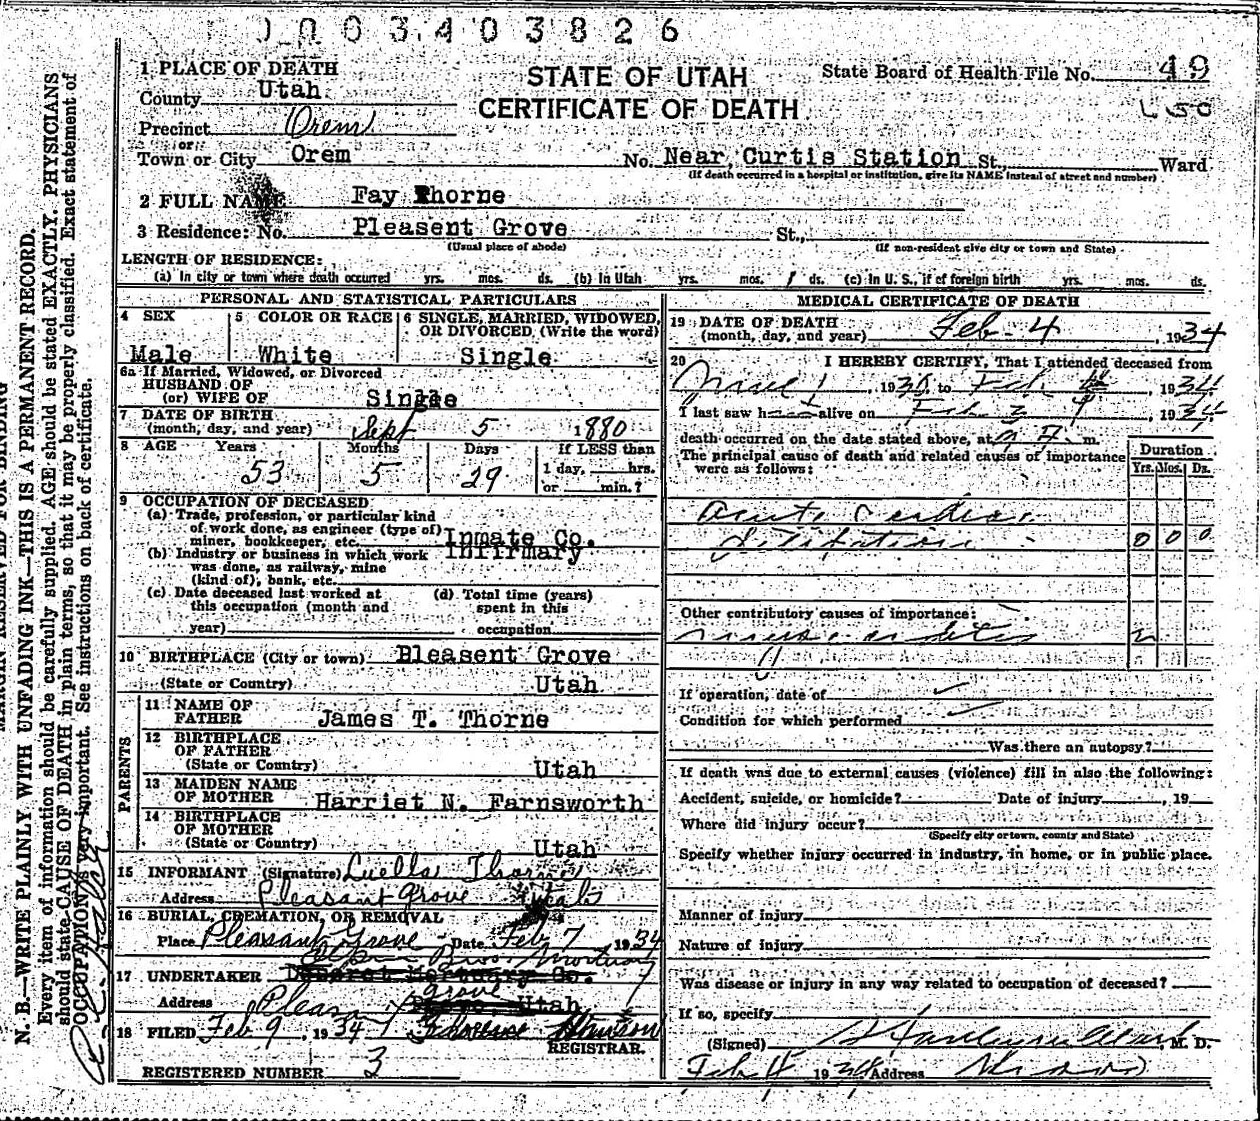 0003403826
STATE OF UTAH
CERTIFICATE OF DEATH
State Board of Health File No. 49
1 PLACE OF DEATH
County Utah
Precinct Orem
or
Town or City Orem No. Near Curtis Station St., Ward
(If death occurred in a hospital or institution, give its NAME instead of street and number)
2 FULL NAME Fay Thorne
3 Residence: No. Pleasent Grove St.,
(Usual place of abode) (If non-resident give city or town and State)
LENGTH OF RESIDENCE:
(a) In city or town where death occurred yrs. mos. ds. (b) In Utah yrs. mos. ds. (c) In U. S., if of foreign birth yrs. mos. ds.
PERSONAL AND STATISTICAL PARTICULARS
4 SEX
Male
5 COLOR OR RACE
White
6 SINGLE, MARRIED, WIDOWED,
OR DIVORCED (Write the word)
Single
6a If Married, Widowed, or Divorced
HUSBAND OF
(or) WIFE OF Single
7 DATE OF BIRTH
(month, day, and year) Sept 5 1880
8 AGE Years Months Days If LESS than
53 5 29 1 day, hrs.
or min.?
9 OCCUPATION OF DECEASED
(a) Trade, profession, or particular kind
of work done, as engineer (type of)
miner, bookkeeper, etc. Inmate Co.
Infirmary
(b) Industry or business in which work
was done, as railway, mine
(kind of), bank, etc.
(c) Date deceased last worked at
this occupation (month and
year)
(d) Total time (years)
spent in this
occupation
10 BIRTHPLACE (City or town) Pleasent Grove
(State or Country) Utah
PARENTS
11 NAME OF
FATHER James T. Thorne
12 BIRTHPLACE
OF FATHER
(State or Country) Utah
13 MAIDEN NAME
OF MOTHER Harriet N. Farnsworth
14 BIRTHPLACE
OF MOTHER
(State or Country) Utah
15 INFORMANT (Signature) Luella Thorne
Address Pleasant Grove Utah
16 BURIAL, CREMATION, OR REMOVAL
Place Pleasant Grove Date Feb 7 1934
17 UNDERTAKER Deseret Mortuary Co.
Address Pleasant Grove Utah
18 FILED Feb 9, 1934
REGISTRAR.
REGISTERED NUMBER 3
MEDICAL CERTIFICATE OF DEATH
19 DATE OF DEATH
(month, day, and year) Feb 4, 1934
20 I HEREBY CERTIFY, That I attended deceased from
193 to Feb , 1934
I last saw h alive on Feb 3, 1934
death occurred on the date stated above, at m.
The principal cause of death and related causes of importance
were as follows:
Duration
Yrs. Mos. Ds.
Acute Cardiac
Dilitation 0 0 0
Other contributory causes of importance:
If operation, date of
Condition for which performed
Was there an autopsy?
If death was due to external causes (violence) fill in also the following:
Accident, suicide, or homicide? Date of injury , 19
Where did injury occur?
(Specify city or town, county and State)
Specify whether injury occurred in industry, in home, or in public place.
Manner of injury
Nature of injury
Was disease or injury in any way related to occupation of deceased?
If so, specify
(Signed) , M. D.
Feb 4 1934 Address
MARGIN RESERVED FOR BINDING
N. B.—WRITE PLAINLY WITH UNFADING INK—THIS IS A PERMANENT RECORD.
Every item of information should be carefully supplied. AGE should be stated EXACTLY. PHYSICIANS
should state CAUSE OF DEATH in plain terms, so that it may be properly classified. Exact statement of
OCCUPATION is very important. See instructions on back of certificate.